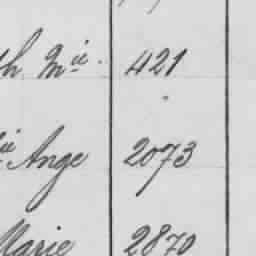 th Mie. 421
ie Ange 2073
Marie 2870